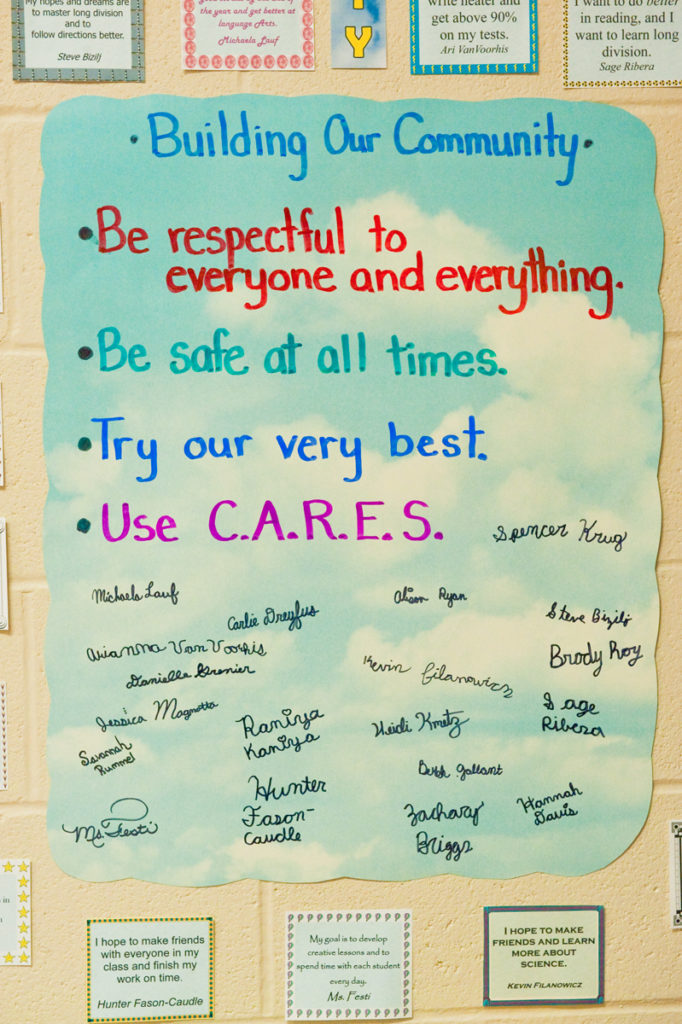 My hopes and dreams are
to master long division
and to
follow directions better.
Steve Bizilj
the year and get better at
language Arts.
Michaela Lauf
T
Y
write neater and
get above 90%
on my tests.
Ari VanVoorhis
I want to do better
in reading, and I
want to learn long
division.
Sage Ribera
• Building Our Community •
• Be respectful to
everyone and everything.
• Be safe at all times.
• Try our very best.
• Use C.A.R.E.S.
Spencer Krug
Michaela Lauf
Carlie Dreyfus
Alison Ryan
Steve Bizilj
Arianna Van Voorhis
Danielle Grenier
Kevin Filanowicz
Brody Roy
Jessica Magnotta
Raniya
Kaniya
Heidi Kmetz
Sage
Ribera
Savannah
Rummel
Beth Gallant
Hunter
Fason-
Caudle
Zachary
Briggs
Hannah
Davis
Ms. Festi
I hope to make friends
with everyone in my
class and finish my
work on time.
Hunter Fason-Caudle
My goal is to develop
creative lessons and to
spend time with each student
every day.
Ms. Festi
I hope to make
friends and learn
more about
science.
Kevin Filanowicz
in